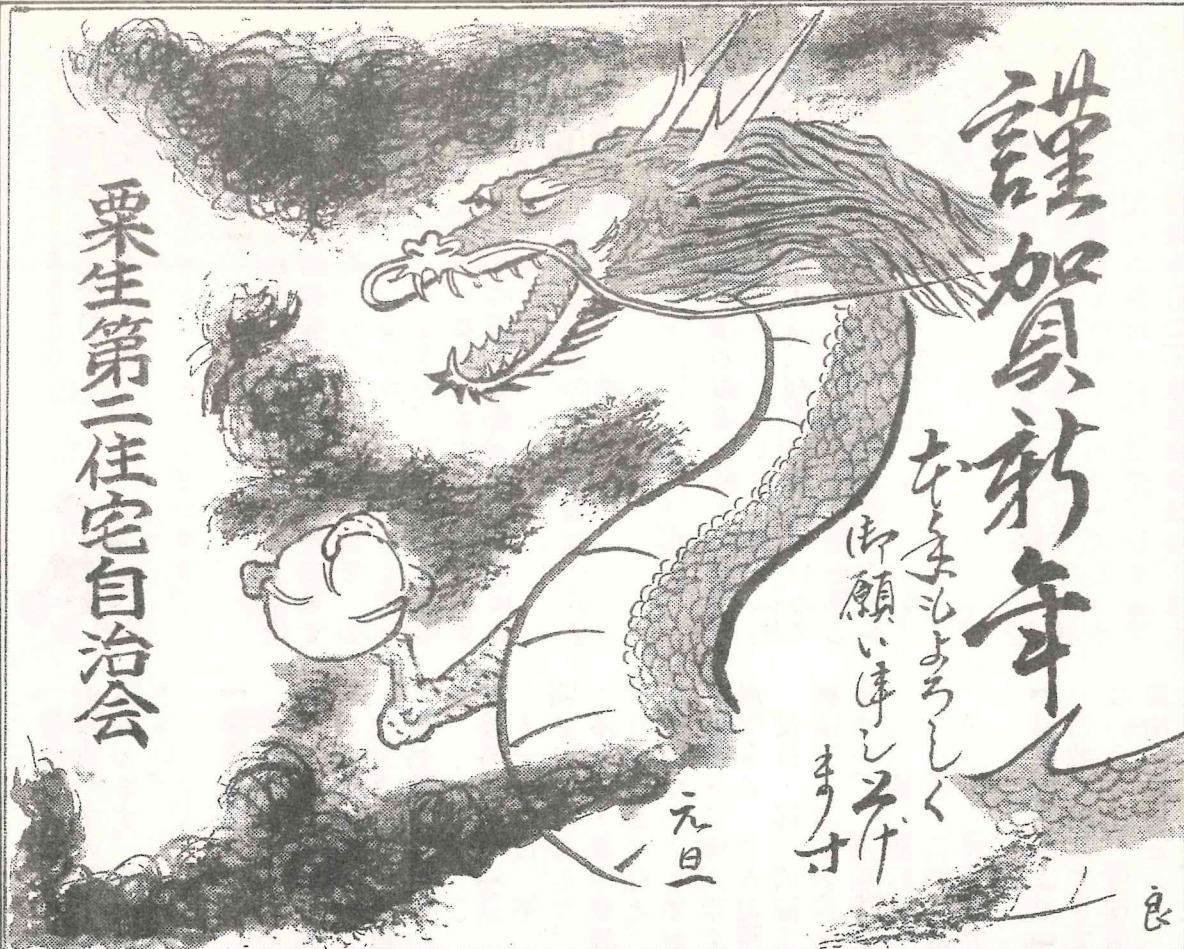 謹賀新年
本年もよろしく
御願い申し上げ
ます
元旦
粟生第二住宅自治会
良